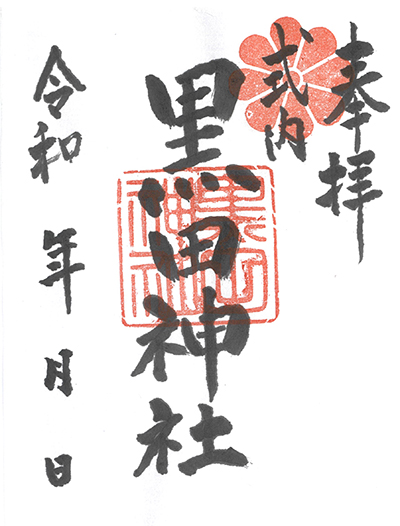 奉拝
式内
黒田神社
令和 年 月 日